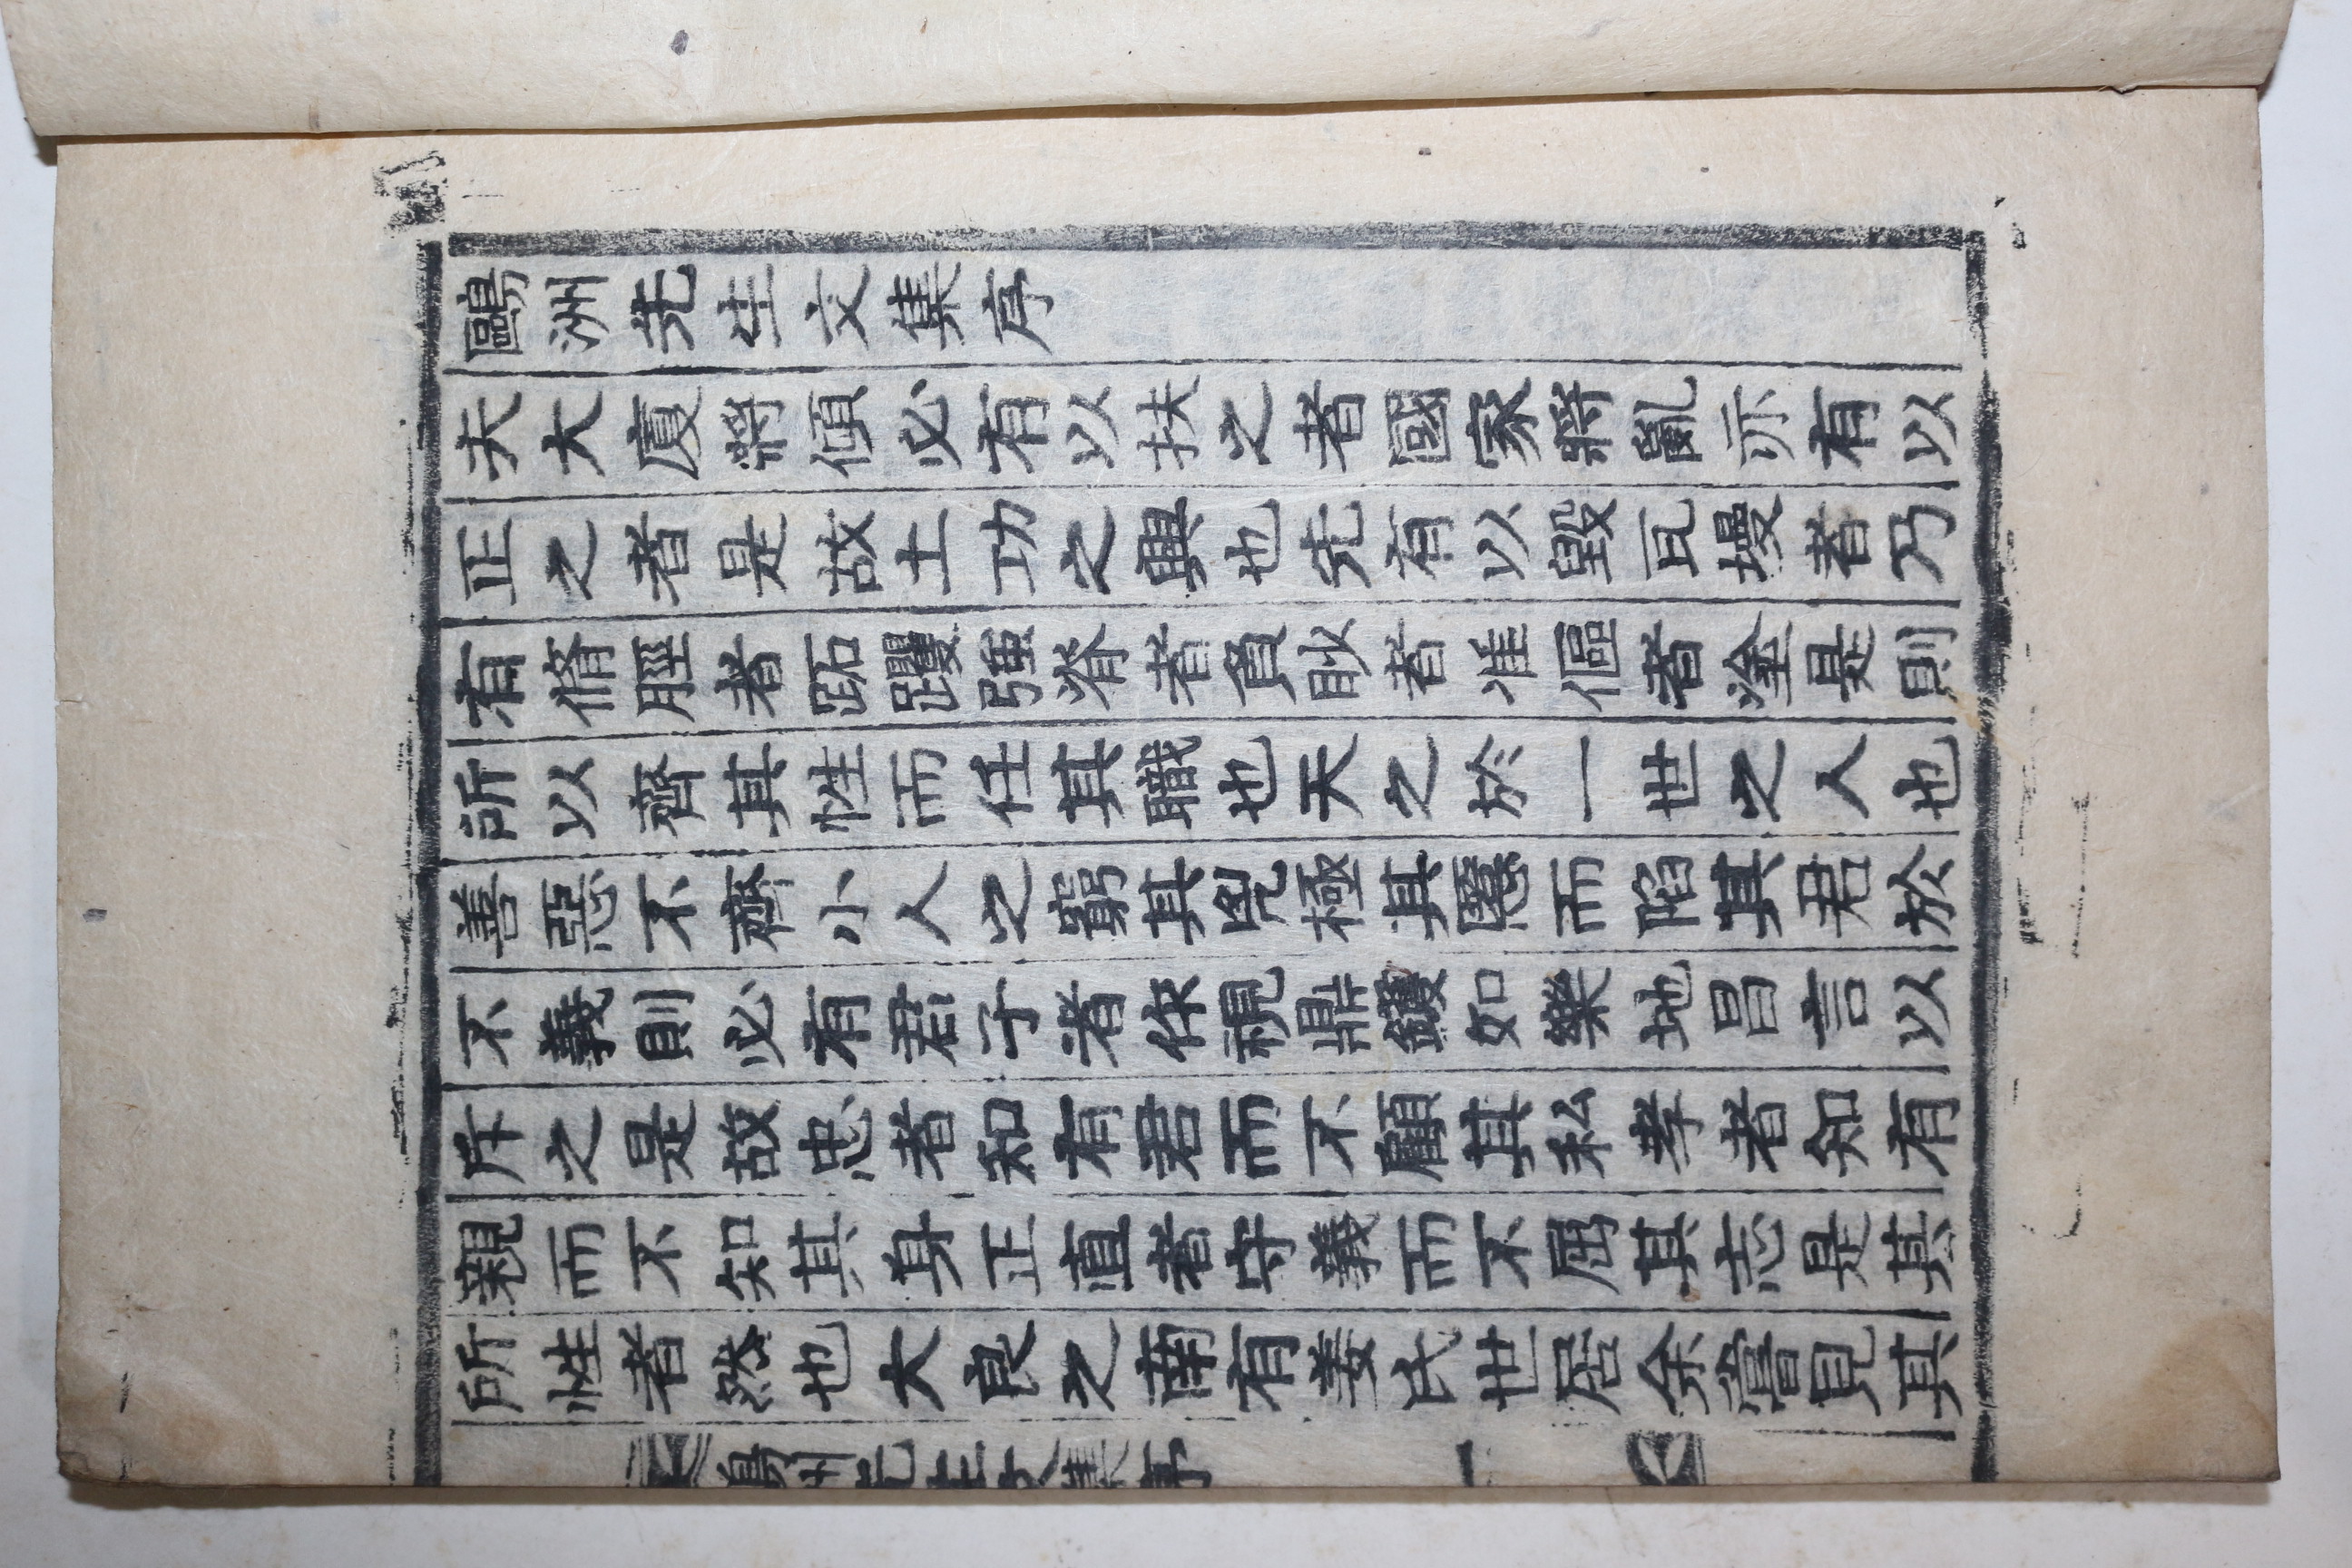 鷗洲先生文集序
夫大廈將傾必有以扶之者國家將亂亦有以
正之者是故土功之興也先有以毀瓦墁者乃
有脩脛者跖钁強脊者負眇者准傴者塗是則
所以齊其性而任其職也天之於一世之人也
善惡不齊小人之窮其兇極其慝而陷其君於
不義則必有君子者作視鼎鑊如樂地昌言以
斥之是故忠者知有君而不顧其私孝者知有
親而不知其身正直者守義而不屈其志是其
所性者然也大良之南有姜氏世居余嘗見其
鷗洲先生文集序 一